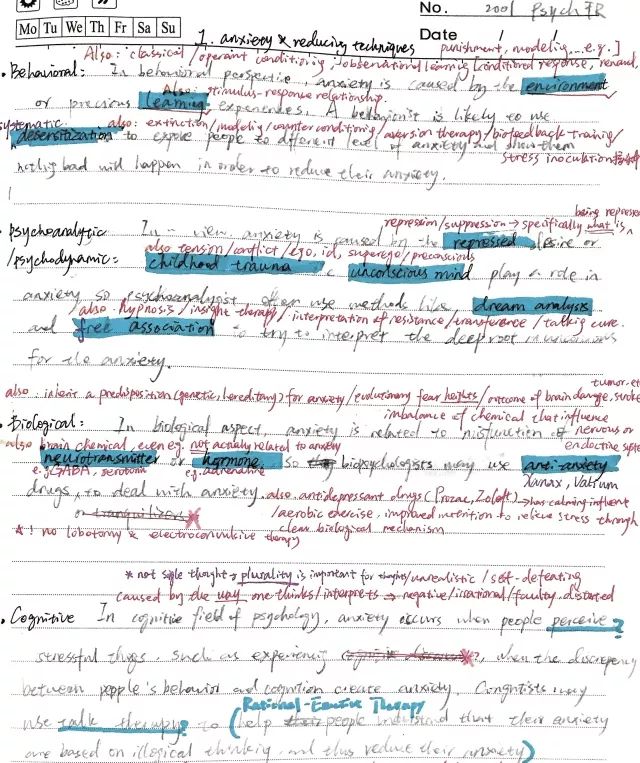 No. 2001 Psych FR
Mo Tu We Th Fr Sa Su
Date / /
1. anxiety & reducing techniques
punishment, modeling...e.g.]
Also: classical/operant conditioning, observational learning [conditioned response, reward,
• Behavioral: In behavioral perspective, anxiety is caused by the environment
Also: stimulus-response relationship.
or previous learning experiences. A behaviorist is likely to use
systematic also: extinction/modeling/counter conditioning/aversion therapy/biofeedback training/
desensitization to expose people to different level of anxiety and show them
stress inoculation
nothing bad will happen in order to reduce their anxiety.
being repressed
repression/suppression → specifically what is
• psychoanalytic In view, anxiety is caused by the repressed desire or
also tension/conflict/ego, id, superego/preconscious
/psychodynamic: childhood trauma unconscious mind play a role in
anxiety, so psychoanalyst often use methods like dream analysis
also hypnosis/insight therapy/interpretation of resistance/transference/talking cure.
and free association to try to interpret the deep root
for the anxiety.
tumor, etc
also: inherit a predisposition (genetic, hereditary) for anxiety/evolutionary fear heights/outcome of brain damage, stroke
imbalance of chemical that influence
• Biological: In biological aspect, anxiety is related to misfunction of nervous or
also brain chemical, even eg. not actually related to anxiety endocrine
neurotransmitter or hormone, so biopsychologists may use anti-anxiety
e.g. GABA, serotonin e.g. adrenaline Xanax, Valium
drugs, to deal with anxiety. also antidepressant drugs (Prozac, Zoloft) → has calming influent
or tranquilizers /aerobic exercise, improved nutrition to relieve stress through
*! no lobotomy & electroconvulsive therapy clear biological mechanism
* not single thought → plurality is important for thoughts/unrealistic/self-defeating
caused by the way one thinks/interprets → negative/irrational/faulty, distorted
• Cognitive In cognitive field of psychology, anxiety occurs when people perceive?
stressful things, such as experiencing cognitive dissonance?, when the discrepency
between people's behavior and cognition create anxiety. Congntists may
Rational-Emotive Therapy
use talk therapy? to (help people understand that their anxiety
are based on illogical thinking, and thus reduce their anxiety)